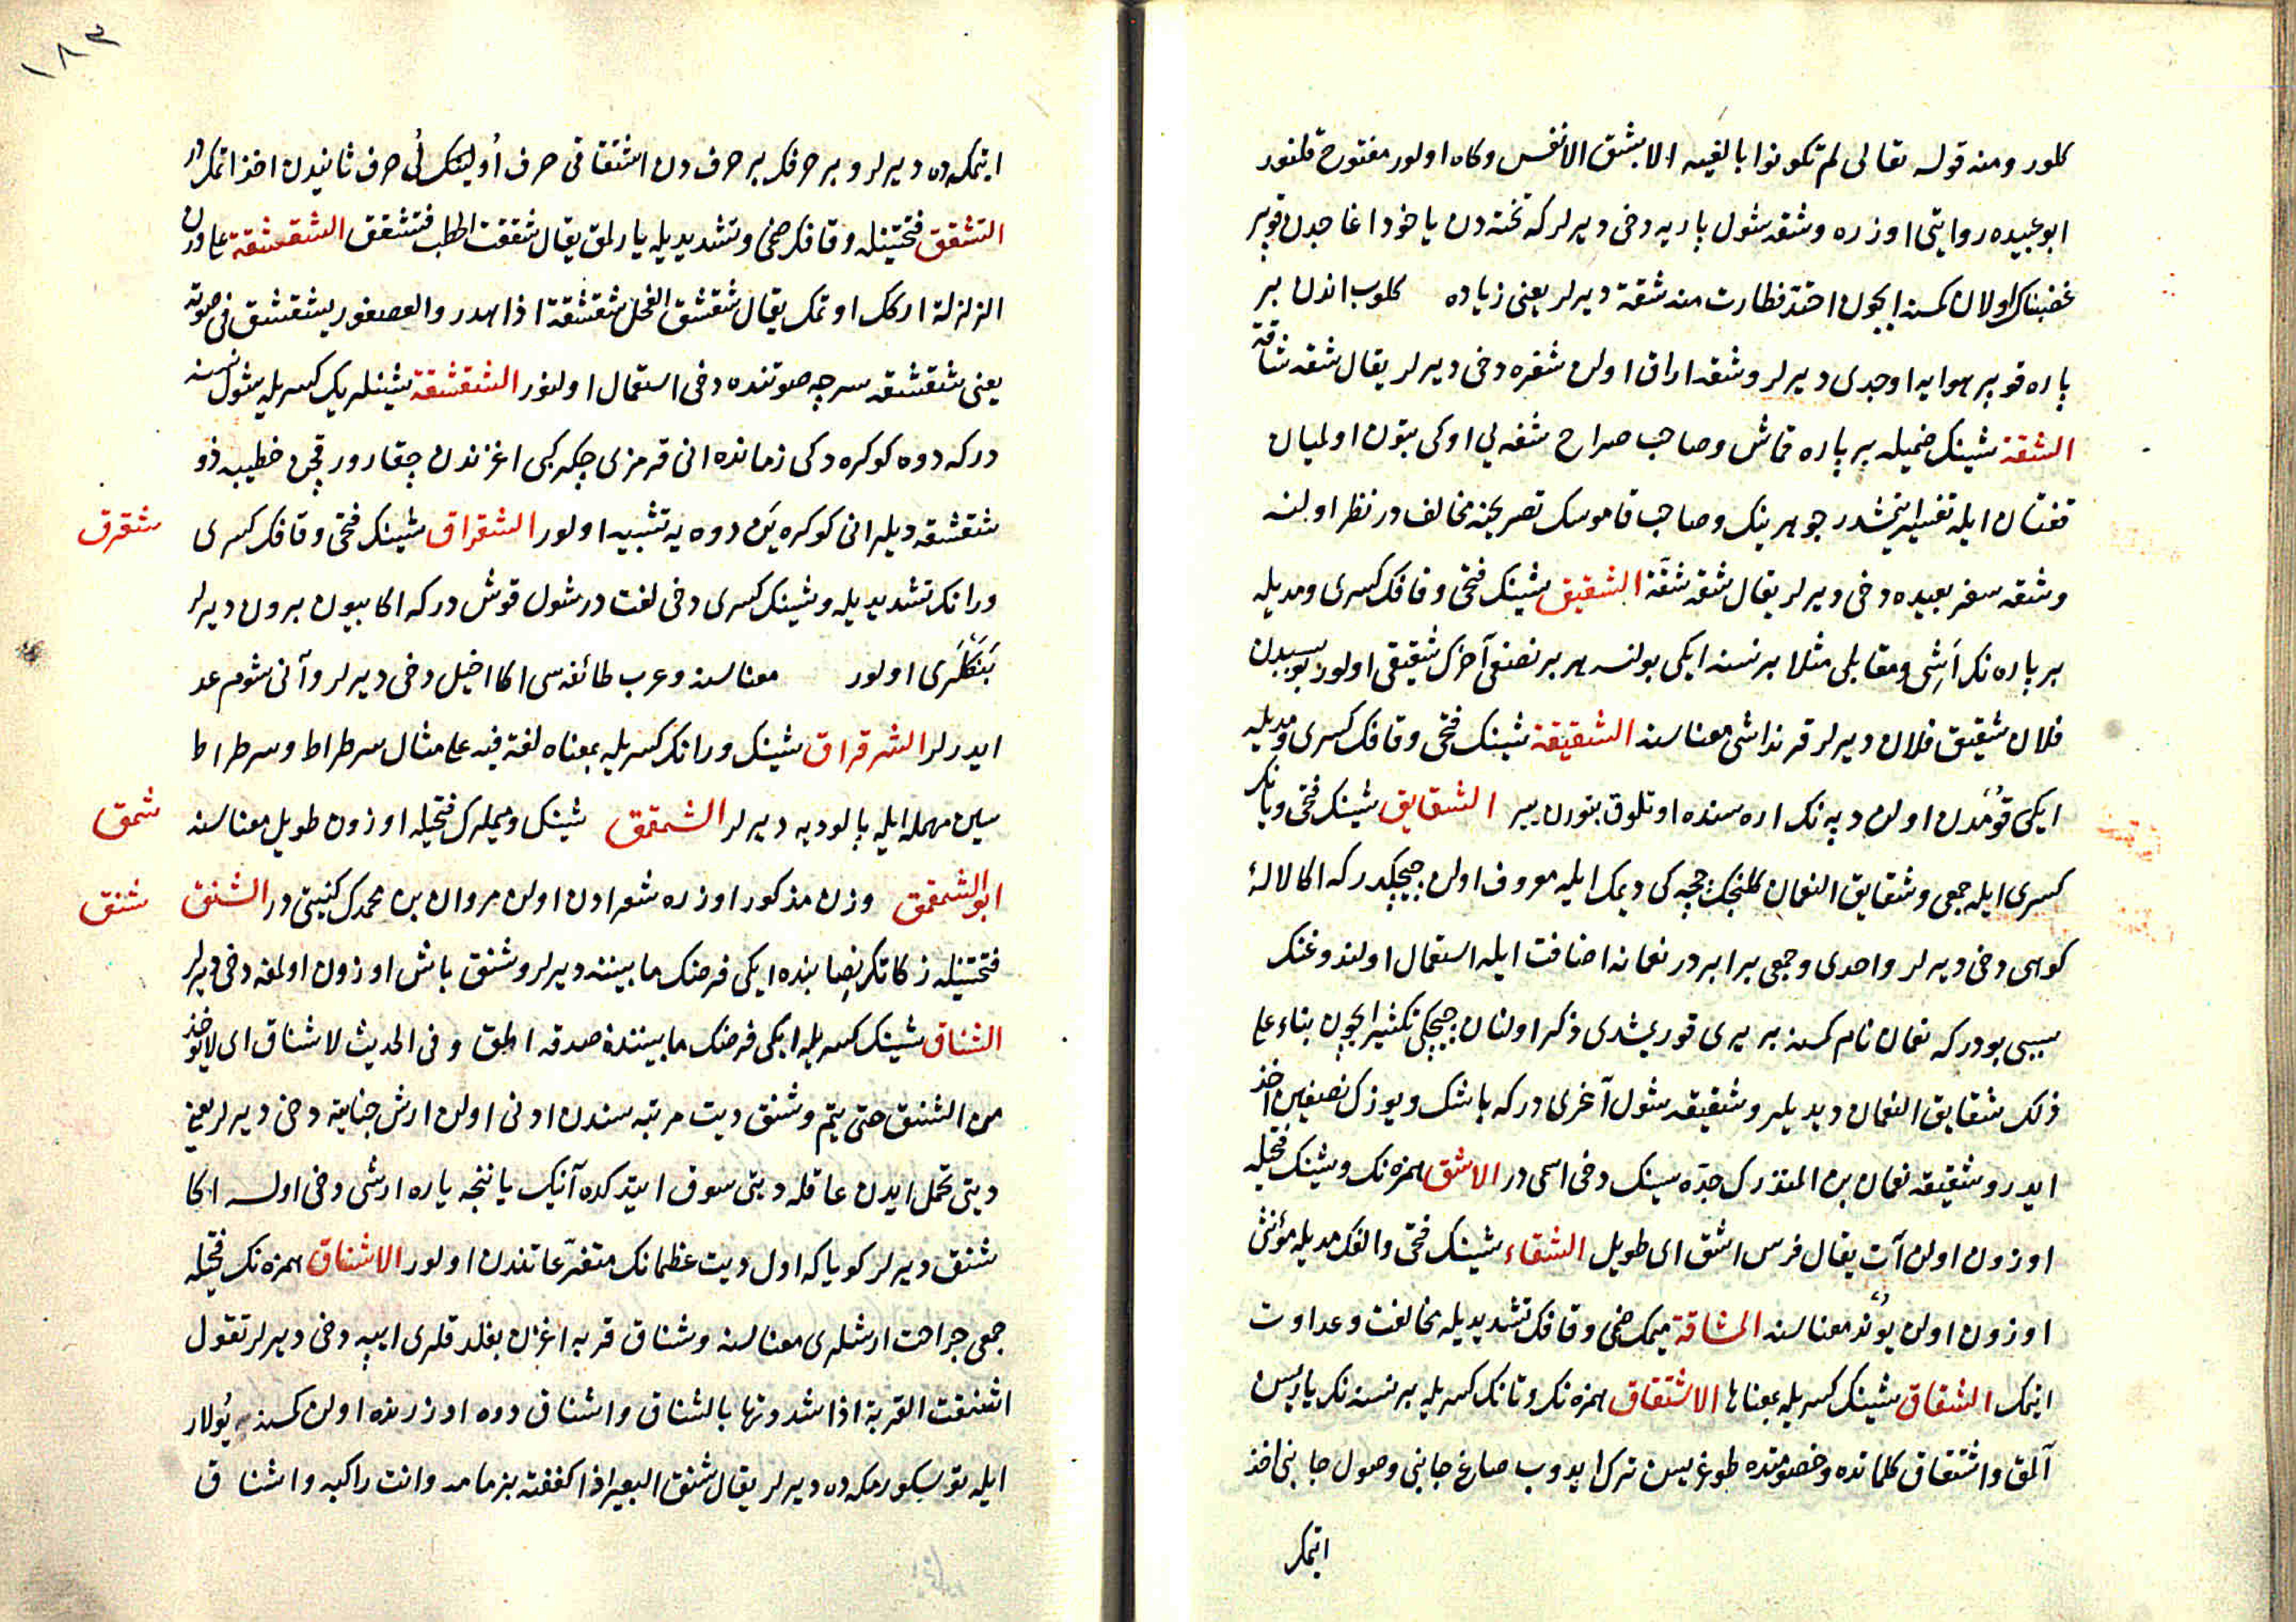 كلور ومنه قوله تعالى لم تكونوا بالغيه الا بشق الانفس وكاه اولور مفتوح قلنور
ابو عبيده روايتى اوزره وشقه شول پاره يه دخى ديرلر كه تخته دن ياخود اغاجدن قوپر
غضبناك اولان كمسنه ايچون احتد فطارت منه شقة ديرلر يعنى زياده كلوب اندن بر
پاره قوپر هوايه اوجدى ديرلر وشقه اراق اولن سفره دخى ديرلر يقال شقه شاقة
الشقة شينك ضميله بر پاره قماش وصاحب صراح شقه يى اوكى بتون اولميان
قفتان ايله تفسير ايتمشدر جوهرينك وصاحب قاموسك تصريحنه مخالفدر نظر اولنه
وشقه سفر بعيده دخى ديرلر يقال شقه شقة الشقيق شينك فتحى وقافك كسرى ومديله
بر پاره نك اشى ومقابلى مثلا بر نسنه ايكى بولنسه هر بر نصفى آخرك شقيقى اولور بو سببدن
فلان شقيق فلان ديرلر قرنداشى معناسنه الشقيقة شينك فتحى وقافك كسرى ومديله
ايكى قومدن اولن دپه نك اره سنده اوتلوق بتورن ير الشقايق شينك فتحى ويانك
كسرى ايله جمعى وشقايق النعمان كلنجك چچكى ديمك ايله معروف اولن چچكدر كه اكا لالۀ
كوهى دخى ديرلر واحدى وجمعى برابردر نعمانه اضافت ايله استعمال اولندوغنك
سببى بودر كه نعمان نام كمسنه بر يرى قوريشدى ذكر اولنان چچكى تكثير ايچون بناء على
ذلك شقايق النعمان ديديلر وشقيقه شول آغرى در كه باشك ويوزك نصفين اخذ
ايدر وشقيقه نعمان بن المنذرك جده سينك دخى اسمى در الاشق همزه نك وشينك فتحيله
اوزون اولن آت يقال فرس اشق اى طويل الشقاء شينك فتحى والفك مديله مؤنثى
اوزون اولن يوند معناسنه المشاقة ميمك ضمى وقافك تشديديله مخالفت وعداوت
ايتمك الشقاق شينك كسريله بمعناها الاشتقاق همزه نك وتانك كسريله بر نسنه نك ياريسن
آلمق واشتقاق كلماتده وخصومتده طوغريسن ترك ايدوب صاغ جانبنى وصول جانبنى اخذ
ايتمك
١٨٣
ايتمكه ده ديرلر وبر حرفك بر حرف دن اشتقاقى حرف اولينك نى حرف ثانيدن اخذ اتمكدر
التشقق فتحتينله وقافك ضمى وتشديديله يارلمق يقال شققت الحطب فتشقق الشقشقة على وزن
الزلزلة اركك اوتمك يقال شقشق الفحل شقشقة اذا هدر والعصفور يشقشق فى صوته
يعنى شقشقه سرچه صوتنده دخى استعمال اولنور الشقشقة شينلريك كسريله شول نسنه
در كه دوه كوكره دكى زمانده انى قرمزى جكر كبى اغزندن چقارور قچن خطيبه ذو
شقشقه ديلر انى كوكره ين دوه يه تشبيه اولور الشقراق شينك فتحى وقافك كسرى
شقرق
ورانك تشديديله وشينك كسرى دخى لغت در شول قوش در كه اكا بيون برون ديرلر
بنكلرى اولور معناسنه وعرب طائفه سى اكا اخيل دخى ديرلر وآنى شوم عد
ايدرلر الشرقراق شينك ورانك كسريله بمعناه لغة فيه على مثال سرطراط وسرطراط
سين مهمله ايله بالوديه ديرلر الشمقمق شينك وميملرك فتحيله اوزون طويل معناسنه
شمق
ابو الشمقمق وزن مذكور اوزره شعرادن اولن مروان بن محمدك كنيتى در الشنق
شنق
فتحتينله زكاتك نصابنده ايكى فرضك مابيننه ديرلر وشنق باش اوزون اولمغه دخى ديرلر
الشناق شينك كسريله ايكى فرضك مابيننده صدقه الق وفى الحديث لا شناق اى لا يؤخذ
من الشنق حتى يتم وشنق ديت مرتبه سندن ادنى اولن ارش جنايته دخى ديرلر يعنى
ديتى تحمل ايدن عاقله ديتى سوق ايتدكده آنيك يانجه ياره ارشى دخى اولسه اكا
شنق ديرلر كويا كه اول ديت عظمانك متفرعاتندن اولور الاشناق همزه نك فتحيله
جمعى جراحت ارشلرى معناسنه وشناق قربه اغزن بغلدقلرى ايپه دخى ديرلر تقول
اشنقت القربة اذا شدوتها بالشناق واشناق دوه اوزرنده اولن كمسنه يولار
ايله توسكورمكه ده ديرلر يقال شنق البعير اذا كففته بزمامه وانت راكبه واشناق